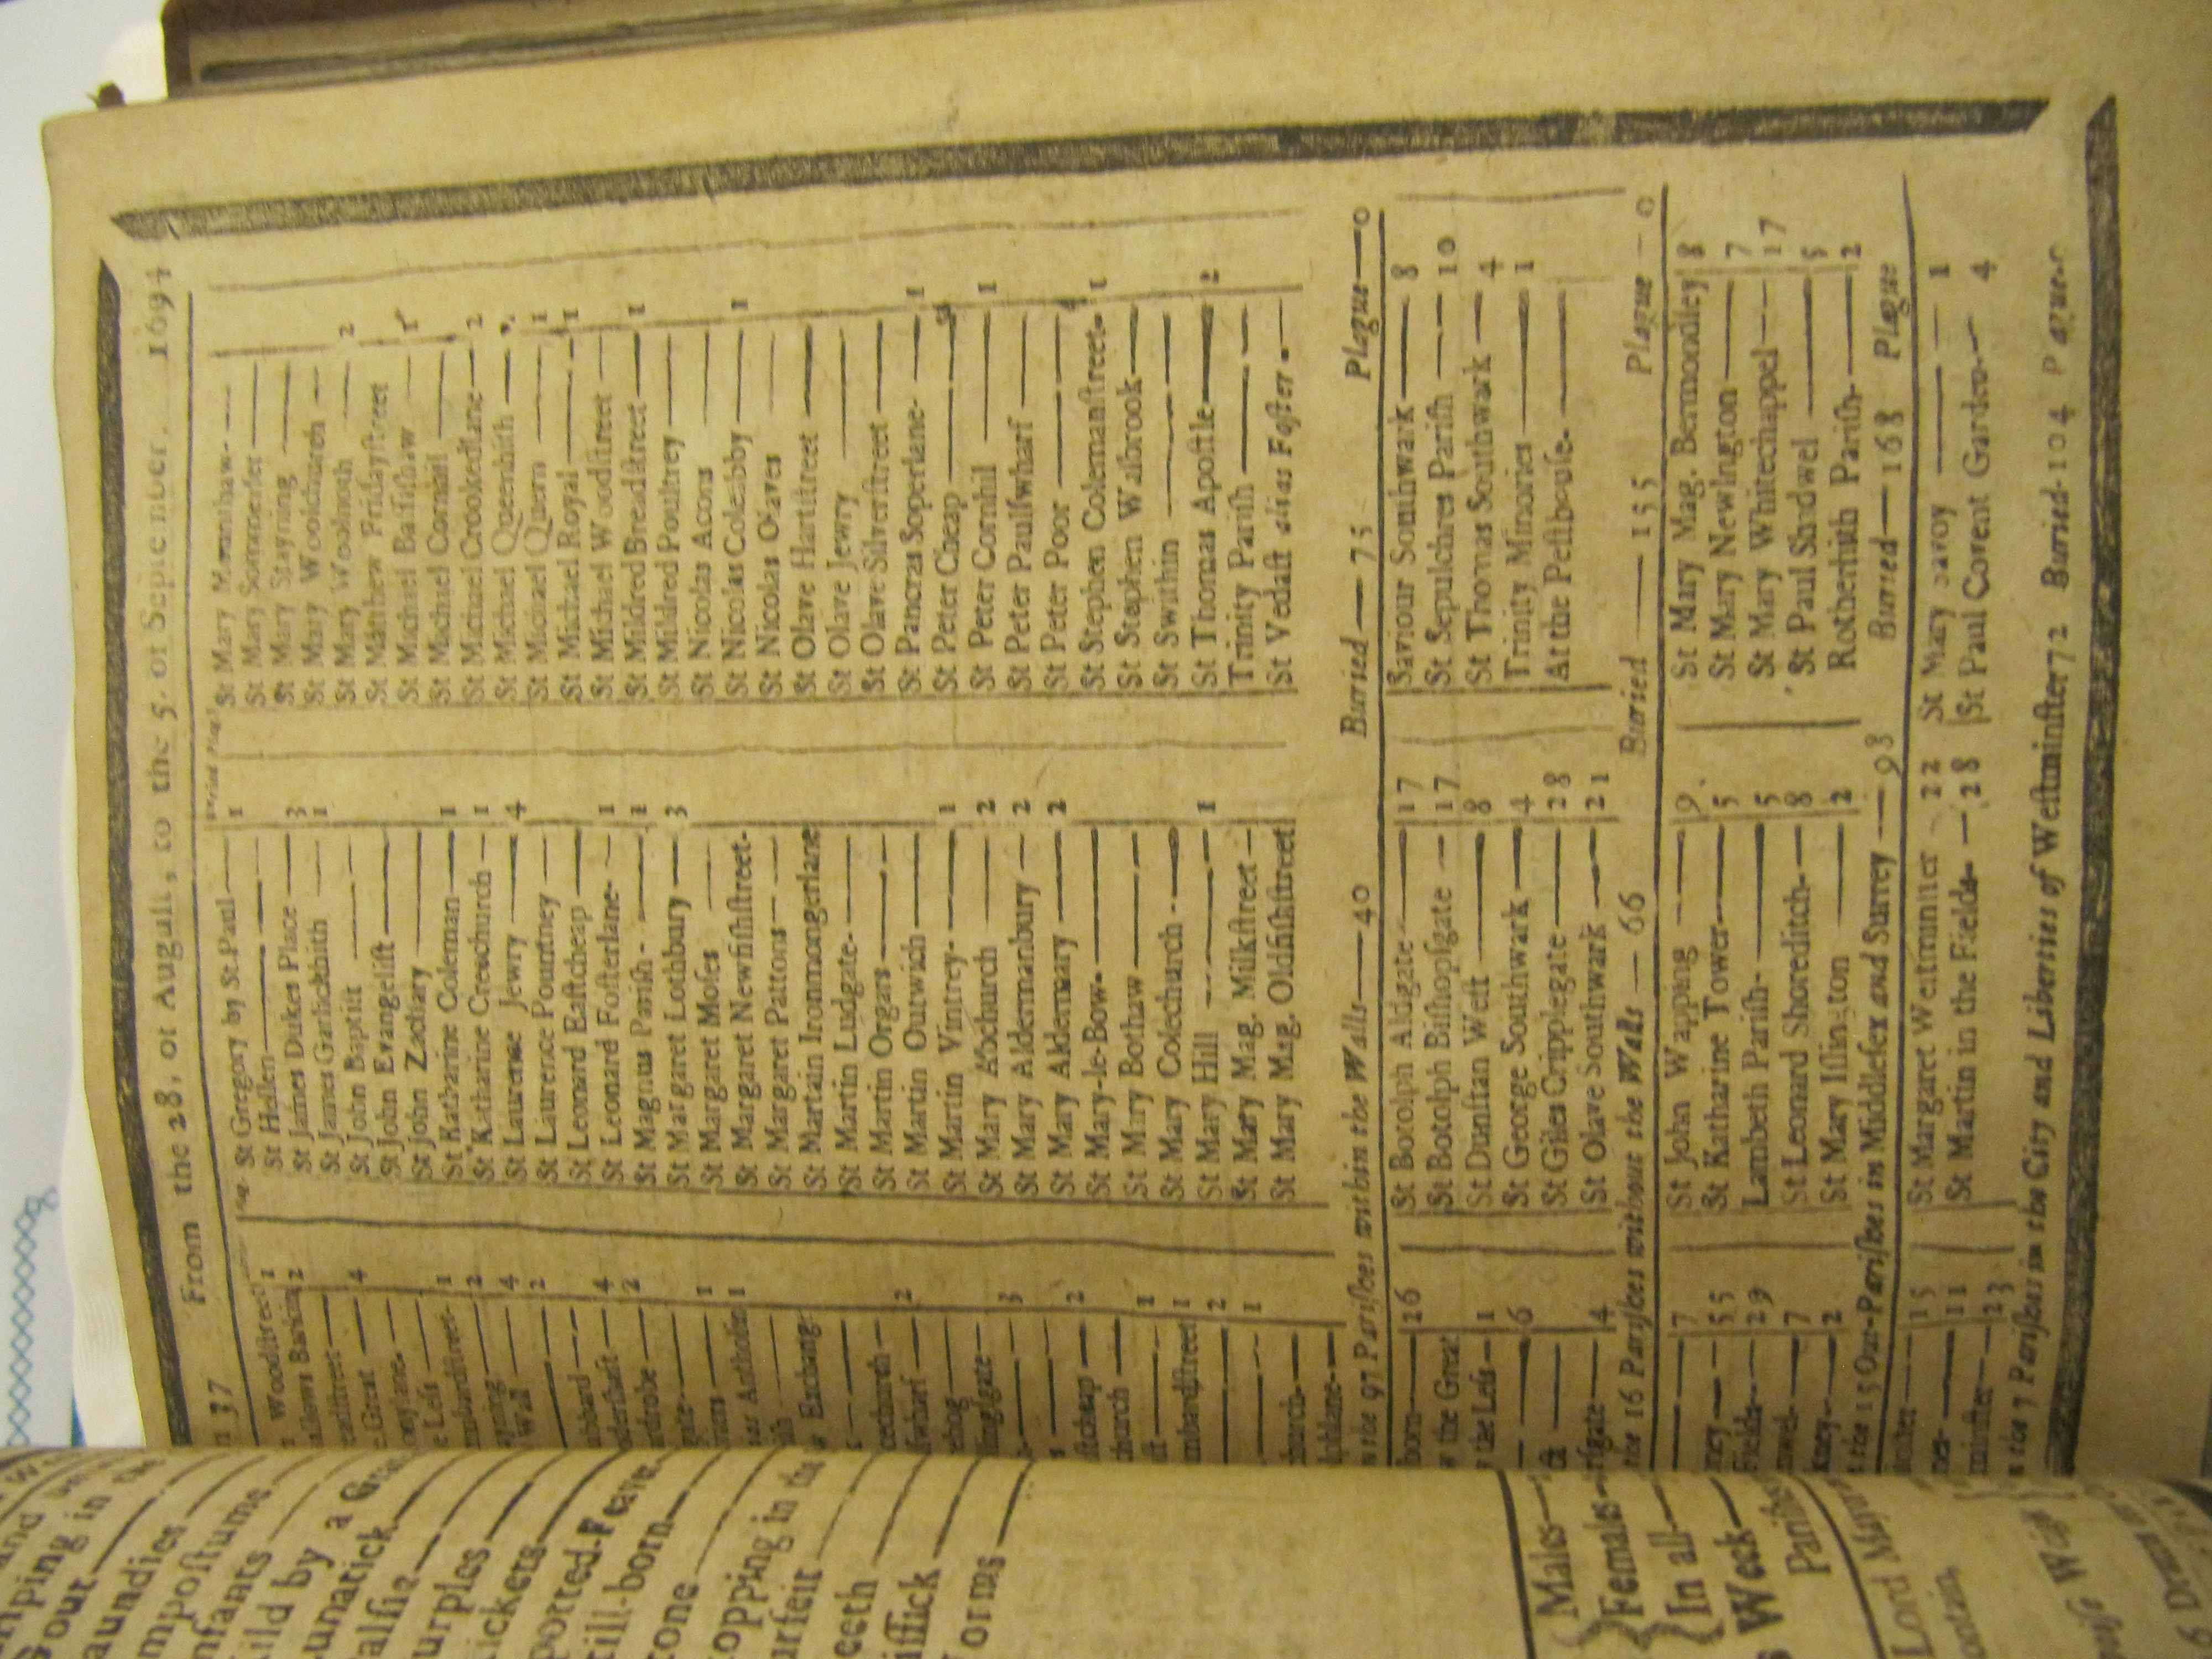 37 From the 28, of August, to the 5. of September. 1694
Woodstreet 1
allows Barking 2
eadstreet
e Great 4
ony lane
e Less 1
mbardstreet 2
ayning 4
Wall 2
mbard 4
dershaft 2
ardrobe
gate 1
Antholin 1
Exchang
cechurch
swharf 2
ehog
lingsgate 3
stcheap 2
church
mbardstreet 1
hurch
hlane
St Gregory by St.Paul 1
St Hellen
St James Dukes Place 3
St James Garlickhith 1
St John Baptist
St John Evangelist
St John Zachary
St Katharine Coleman 1
St Katharine Creechurch 1
St Laurence Jewry 4
St Laurence Pountney
St Leonard Eastcheap
St Leonard Fosterlane 1
St Magnus Parish 1
St Margaret Lothbury 3
St Margaret Moses
St Margaret Newfishstreet
St Margaret Pattons
St Martain Ironmongerlane
St Martin Ludgate
St Martin Orgars
St Martin Outwich
St Martin Vintrey 1
St Mary Abchurch 2
St Mary Aldermanbury 2
St Mary Aldermary 2
St Mary-le-Bow
St Mary Bothaw
St Mary Colechurch
St Mary Hill 1
St Mary Mag. Milkstreet
St Mary Mag. Oldfishstreet
St Mary Mounthaw
St Mary Sommerset
St Mary Stayning
St Mary Woolchurch
St Mary Woolnoth 2
St Matthew Fridaystreet
St Michael Bassishaw 1
St Michael Cornhil
St Michael Crookedlane 2
St Michael Queenhith
St Michael Quern 1
St Michael Royal 1
St Michael Woodstreet
St Mildred Breadstreet 1
St Mildred Poultrey
St Nicolas Acons
St Nicolas Coleabby 1
St Nicolas Olaves
St Olave Hartstreet
St Olave Jewry
St Olave Silverstreet
St Pancras Soperlane 1
St Peter Cheap
St Peter Cornhil 1
St Peter Paulswharf
St Peter Poor
St Stephen Colemanstreet 1
St Stephen Walbrook
St Swithin
St Thomas Apostle 2
Trinity Parish
St Vedast alias Foster
the 97 Parishes within the Walls—40 Buried—75 Plague—0
born 26
the Great
the Less 1
6
gate 4
St Botolph Aldgate 17
St Botolph Bishopsgate 17
St Dunstan West 8
St George Southwark 4
St Giles Cripplegate 28
St Olave Southwark 21
Saviour Southwark 8
St Sepulchres Parish 10
St Thomas Southwark 4
Trinity Minories 1
At the Pesthouse
the 16 Parishes without the Walls—66 Buried—155 Plague—0
7
ney 55
Fields 29
nwel 7
kney 2
St John Wapping 9
St Katharine Tower 5
Lambeth Parish 5
St Leonard Shoreditch 8
St Mary Islington 2
St Mary Mag. Bermondsey 8
St Mary Newington 7
St Mary Whitechappel 17
St Paul Shadwel 5
Rotherhith Parish 2
the 15 Out-Parishes in Middlesex and Surrey—98 Buried—168 Plague
15
nes 11
minster 23
St Margaret Westminster 22
St Martin in the Fields 28
St Mary Savoy 1
St Paul Covent Garden 4
the 7 Parishes in the City and Liberties of Westminster 72 Buried-104 Plague
pping in the
Gout
aundies
mpostume
nfants
ild by a
unatick
alsie
urples
ickets
potted-Feaver
till-born
tone
topping in the
urfeit
eeth
issick
orms
Males
Females
In all
Week
Parishes
Lord Mayor